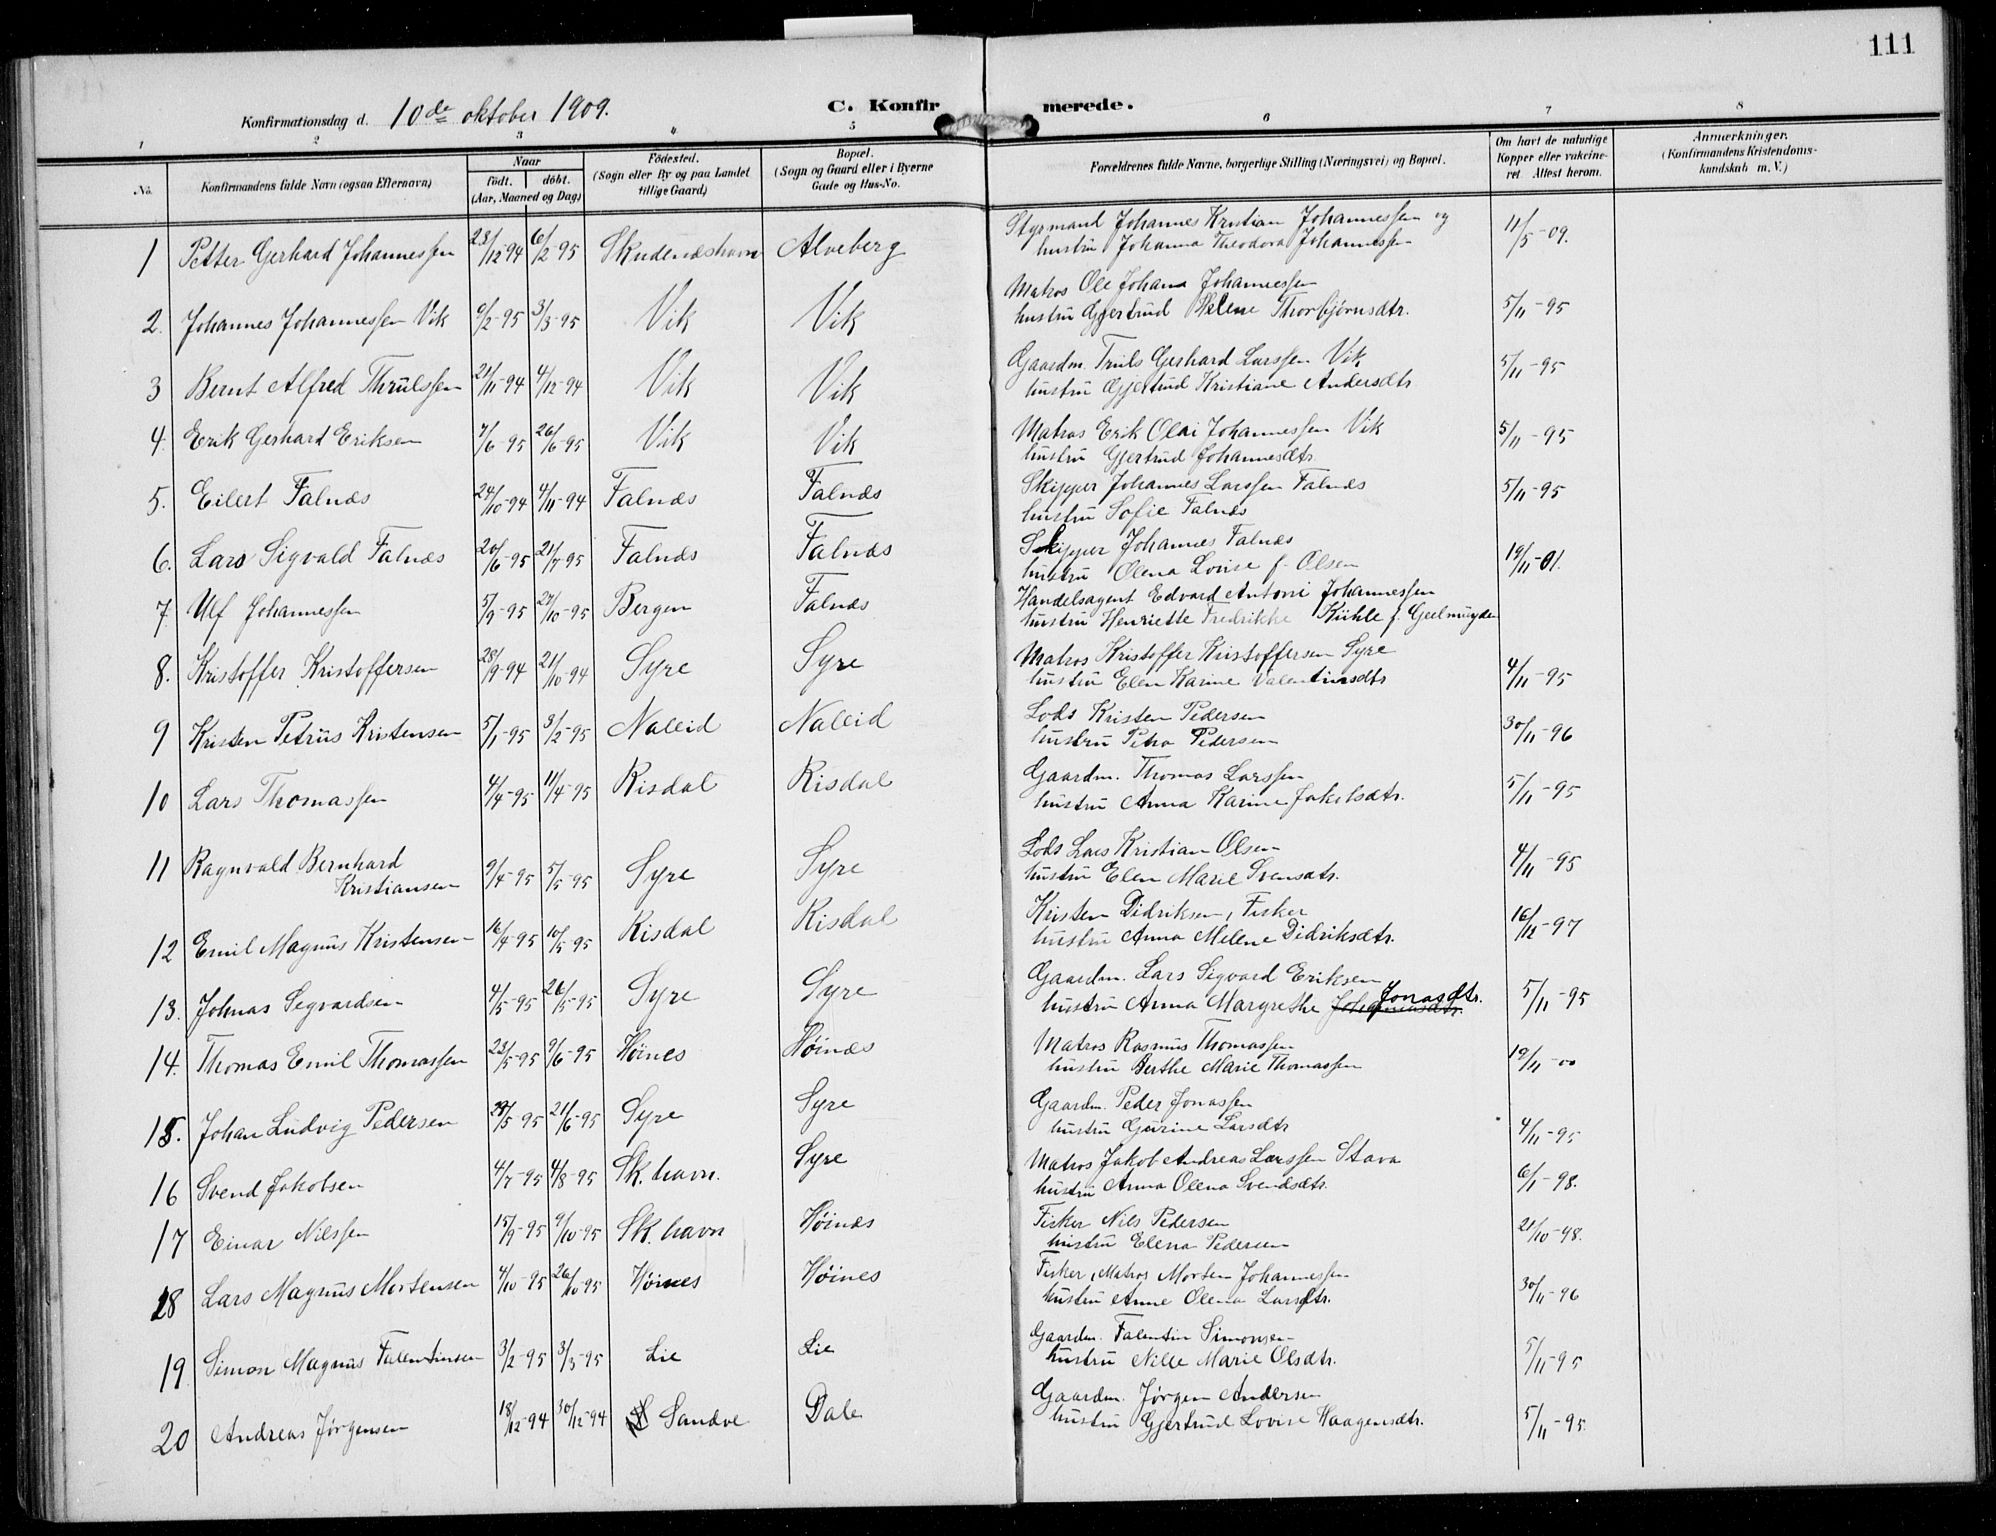 111
Konfirmationsdag d. 10de oktober 1909. C. Konfirmerede.
1 2 3 4 5 6 7 8
No. Konfirmandens fulde Navn (ogsaa Efternavn) Naar födt. döbt. (Aar, Maaned og Dag) Födested. (Sogn eller By og paa Landet tillige Gaard) Bopæl. (Sogn og Gaard eller i Byerne Gade og Hus-No. Forældrenes fulde Navne, borgerlige Stilling (Næringsvei) og Bopæl. Om havt de naturlige Kopper eller vakcineret. Attest herom. Anmærkninger. (Konfirmandens Kristendomskundskab m. V.)
1 Petter Gerhard Johannessen 23/12 94 6/2 95 Skudeneshavn Alveberg Styrmand Johannes Kristian Johannessen og 11/5-09.
hustru Johanna Theodora Johannessen
2. Johannes Johannessen Vik 9/2-95 3/3-95 Vik Vik Matros Ole Johana Johannessen 5/11-95
hustru Gjertrud Helene Thorbjørnsdtr.
3 Bernt Alfred Thrulssen 21/11-94 4/12-94 Vik Vik Gaardm. Truls Gerhard Larssen Vik 5/11-95
hustru Gjertrud Kristiane Andersdtr
4. Erik Gerhard Eriksen 7/6 95 26/6-95 Vik Vik Matros Erik Olai Johannessen Vik 5/11-95
hustru Gjertrud Johannesdtr.
5. Eilert Falnæs 24/10-94 4/11-94 Falnæs Falnæs Skipper Johannes Larssen Falnæs 5/11-95
hustru Sofie Falnæs
6. Lars Sigvald Falnæs 20/6-95 21/7-95 Falnæs Falnæs Skipper Johannes Falnæs 19/11-01.
hustru Olena Lovise f. Olsen
7. Ulf Johannessen 5/9-95 27/10-95 Bergen Falnæs Handelsagent Edvard Antoni Johannessen
hustru Henriette Fredrikke Kühle f. Geelmuyden
8. Kristoffer Kristoffersen 28/9-94 21/10-94 Syre Syre Matros Kristoffer Kristoffersen Syre 4/11-95
hustru Elen Karine Valentinsdtr
9 Kristen Petrus Kristensen 5/1-95 3/2-95 Naleid Naleid Lods Kristen Pedersen 30/11-96
hustru Petra Pedersen
10 Lars Thomassen 4/4-95 11/4-95 Risdal Risdal Gaardm. Thomas Larssen 5/11-95
hustru Anna Karine Jakobsdtr.
11 Ragnvald Bernhard Kristiansen 9/4-95 5/5-95 Syre Syre Lods Lars Kristian Olsen 4/11-95
hustru Elen Marie Svensdtr.
12 Emil Magnus Kristensen 16/4-95 10/5-95 Risdal Risdal Kristen Didriksen, Fisker 16/12-97
hustru Anna Melene Didriksdtr.
13. Johnas Segvardsen 4/5-95 26/5-95 Syre Syre Gaardm. Lars Sigvard Eriksen 5/11-95
hustru Anna Margrethe Jonasdtr.
14. Thomas Emil Thomassen 23/5-95 9/6-95 Höines Höinæs Matros Rasmus Thomassen 19/11-00
hustru Berthe Marie Thomassen
15. Johan Ludvig Pedersen 29/5-95 21/6-95 Syre Syre Gaardm. Peder Jonassen 4/11-95
hustru Gurine Larsdtr
16 Svend Jakobsen 4/7-95 4/8-95 Sk. havn. Syre Matros Jakob Andreas Larssen Stava 6/1-98.
hustru Anna Olena Svendsdtr.
17 Einar Nilssen 15/9-95 9/10-95 Sk. havn Höinæs Fisker Nils Pedersen 21/10-98.
hustru Elena Pedersen
18 Lars Magnus Mortensen 4/10-95 26/10-95 Höines Höines Fisker, Matros Morten Johannessen 30/11-96
hustru Anne Olena Larsdtr.
19 Simon Magnus Falentinsen 3/2-95 3/3-95 Lie Lie Gaardm. Falentin Simonsen 5/11-95
hustru Nille Marie Olsdtr.
20 Andreas Jørgensen 18/12-94 30/12-94 Sandve Dale Gaardm. Jørgen Andersen 5/11-95.
hustru Gjertrud Lovise Haagensdtr.